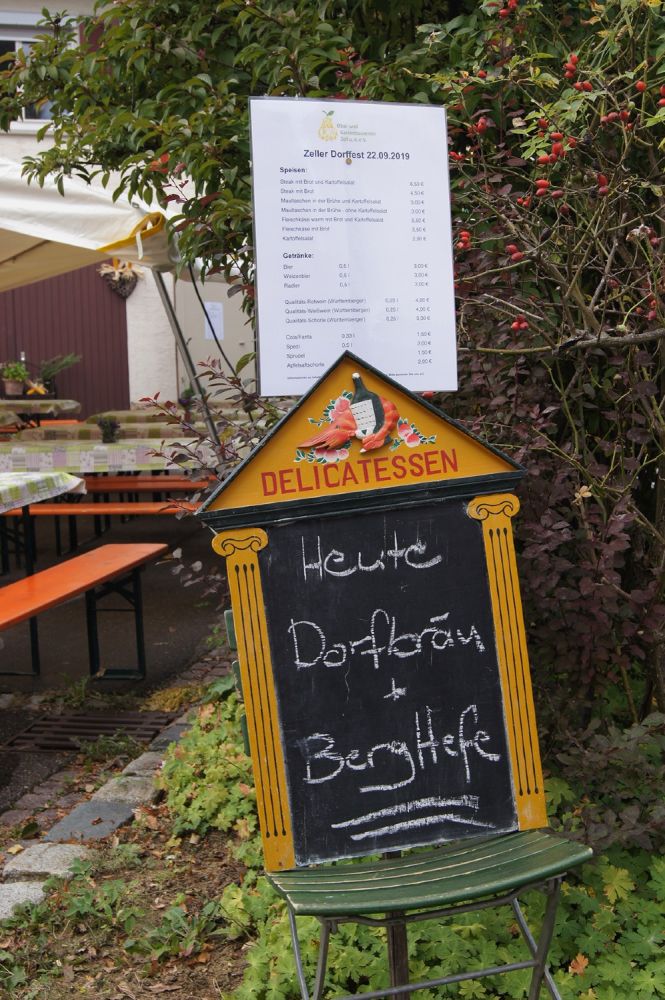 Obst- und
Gartenbauverein
Zell u.A. e.V.
Zeller Dorffest 22.09.2019
Speisen:
Steak mit Brot und Kartoffelsalat 6,50 €
Steak mit Brot 4,50 €
Maultaschen in der Brühe und Kartoffelsalat 5,00 €
Maultaschen in der Brühe - ohne Kartoffelsalat 3,00 €
Fleischkäse warm mit Brot und Kartoffelsalat 5,50 €
Fleischkäse mit Brot 3,50 €
Kartoffelsalat 2,50 €
Getränke:
Bier 0,5 l 3,00 €
Weizenbier 0,5 l 3,00 €
Radler 0,5 l 3,00 €
Qualitäts-Rotwein (Württemberger) 0,25 l 4,00 €
Qualitäts-Weißwein (Württemberger) 0,25 l 4,00 €
Qualitäts-Schorle (Württemberger) 0,25 l 3,00 €
Cola/Fanta 0,33 l 1,50 €
Spezi 0,5 l 2,00 €
Sprudel 1,50 €
Apfelsaftschorle 2,00 €
DELICATESSEN
Heute
Dorfbräu
+
BergHefe